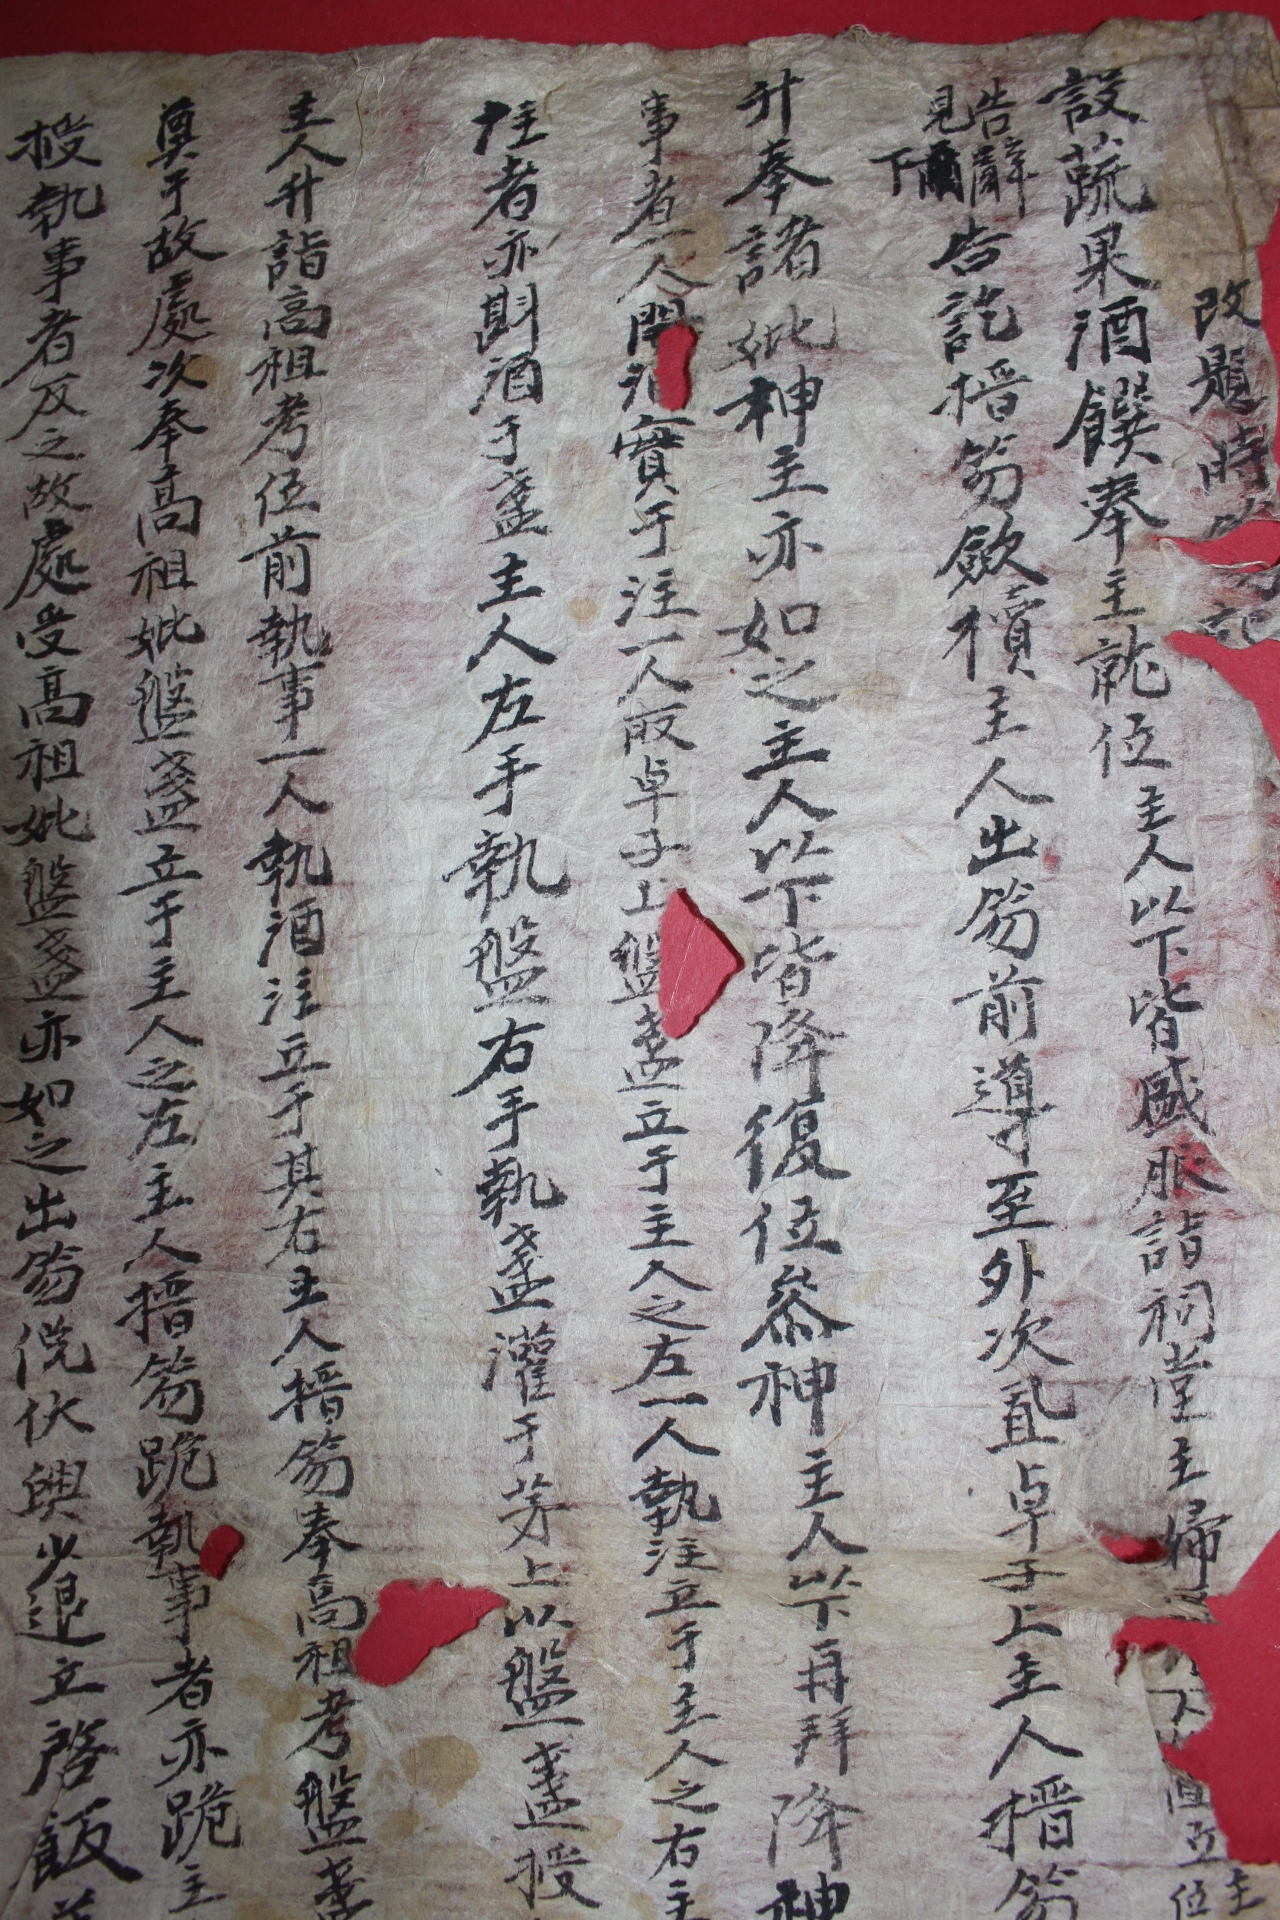 改題時
設蔬果酒饌奉主就位主人以下皆盛服詣祠堂主婦
告辭見下
告訖搢笏斂櫝主人出笏前導至外次置卓子上主人搢笏
升奉諸妣神主亦如之主人以下皆降復位叅神主人以下再拜降神
事者一人開酒實于注一人取卓子上盤盞立于主人之左一人執注立于主人之右主
注者亦斟酒于盞主人左手執盤右手執盞灌于茅上以盤盞授
主人升詣高祖考位前執事一人執酒注立于其右主人搢笏奉高祖考盤盞
奠于故處次奉高祖妣盤盞立于主人之左主人搢笏跪執事者亦跪主
授執事者反之故處受高祖妣盤盞亦如之出笏俛伏興少退立啓飯